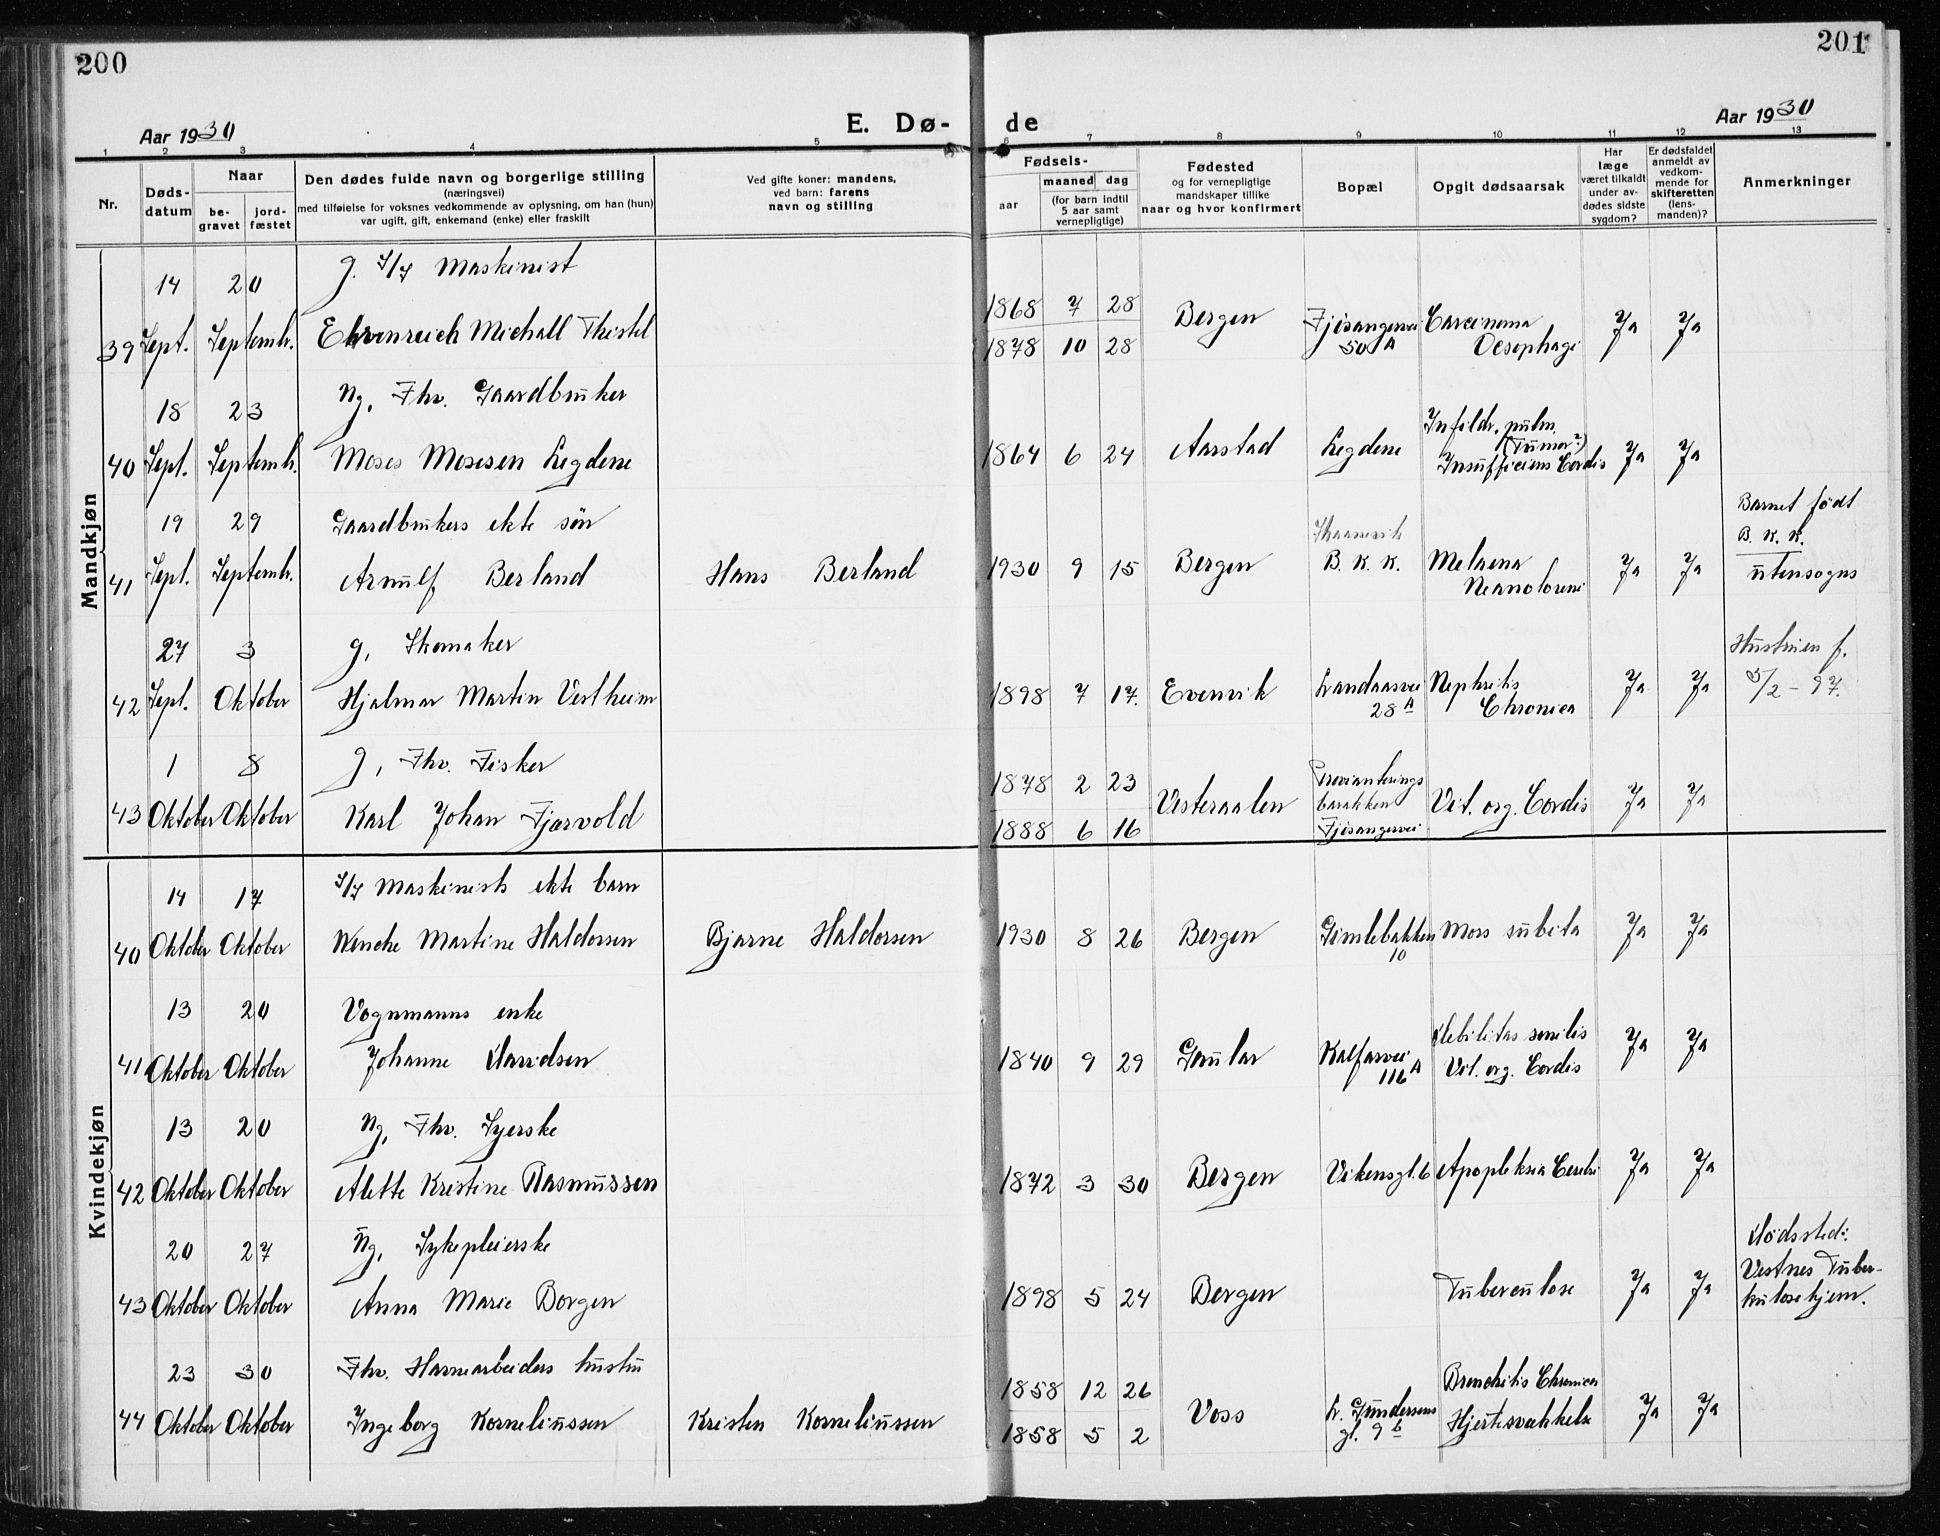 200
201
Aar 1930
E. Dø-
de
Aar 1930
1 2 3 4 5 6 7 8 9 10 11 12 13
Nr.
Døds-
datum
Naar
be-
gravet
jord-
fæstet
Den dødes fulde navn og borgerlige stilling
(næringsvei)
med tilføielse for voksnes vedkommende av oplysning, om han (hun)
var ugift, gift, enkemand (enke) eller fraskilt
Ved gifte koner: mandens,
ved barn: farens
navn og stilling
Fødsels-
aar
maaned
dag
(for barn indtil
5 aar samt
vernepligtige)
Fødested
og for vernepligtige
mandskaper tillike
naar og hvor konfirmert
Bopæl
Opgit dødsaarsak
Har
læge
været tilkaldt
under av-
dødes sidste
sygdom?
Er dødsfaldet
anmeldt av
vedkom-
mende for
skifteretten
(lens-
manden)?
Anmerkninger
Mandkjøn
14 20 g. Maskinist
39 Sept. Septemb. Ehrenreich Michall Thistel
1868 7 28
1878 10 28
Bergen
Fjøsangervei
50 A
Carcinoma
Oesophagi
Ja Ja
18 23 Ug. Fhv. Gaardbruker
40 Sept. Septemb. Moses Mosesen Legdene
1864 6 24 Aarstad Legdene
Infiltr. pulm.
(Tumor?)
Insufficiens Cordis
Ja Ja
19 29 Gaardbrukers ekte søn
41 Sept. Septemb. Arnulf Berland Hans Berland
1930 9 15 Bergen
B. K. K.
Melaena
Ja Ja
Barnet født
B. K. K.
utensogns
27 3 g, Skomaker
42 Sept. Oktober Hjalmar Martin Vestheim
1898 7 17. Evenvik
Landaasvei
28 A
Nephritis
Chronica
Ja Ja
Hustruen f.
5/2 - 97.
1 8 g, Fhv. Fisker
43 Oktober Oktober Karl Johan Fjærvold
1878 2 23
1888 6 16
Vesteraalen
Provianterings
barakken
Fjøsangervei
Vit. org. Cordis
Ja Ja
Kvindekjøn
14 17 Maskinists ekte barn
40 Oktober Oktober Wenche Martine Haldorsen Bjarne Haldorsen
1930 8 26 Bergen
Gimlebakken
10
Mors subita
Ja Ja
13 20 Vognmanns enke
41 Oktober Oktober Johanne Davidsen
1840 9 29 Gaular
Kalfarvei
116 A
Debilitas senilis
Vit. org. Cordis
Ja Ja
13 20 Ug, Fhv. Syerske
42 Oktober Oktober Alette Kristine Rasmussen
1872 3 30 Bergen Vikensgt. 6 Apopleksia Cerebri
Ja Ja
20 27 Ug, Sykepleierske
43 Oktober Oktober Anna Marie Borgen
1898 5 24 Bergen Tuberculose
Ja Ja
Dødssted:
Vestnes Tuber-
kulosehjem.
23 30 Fhv. Havnearbeiders hustru
44 Oktober Oktober Ingeborg Korneliussen Kristen Korneliussen
1858 12 26
1858 5 2
Voss
L. Gundersens
gt. 9 b
Bronchitis Chronica
Hjertesvækkelse
Ja Ja